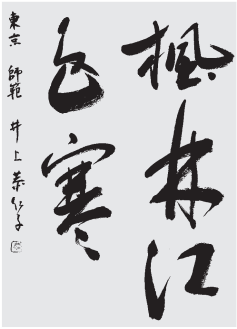 楓林江
色寒
東京 師範 井上恭仙子